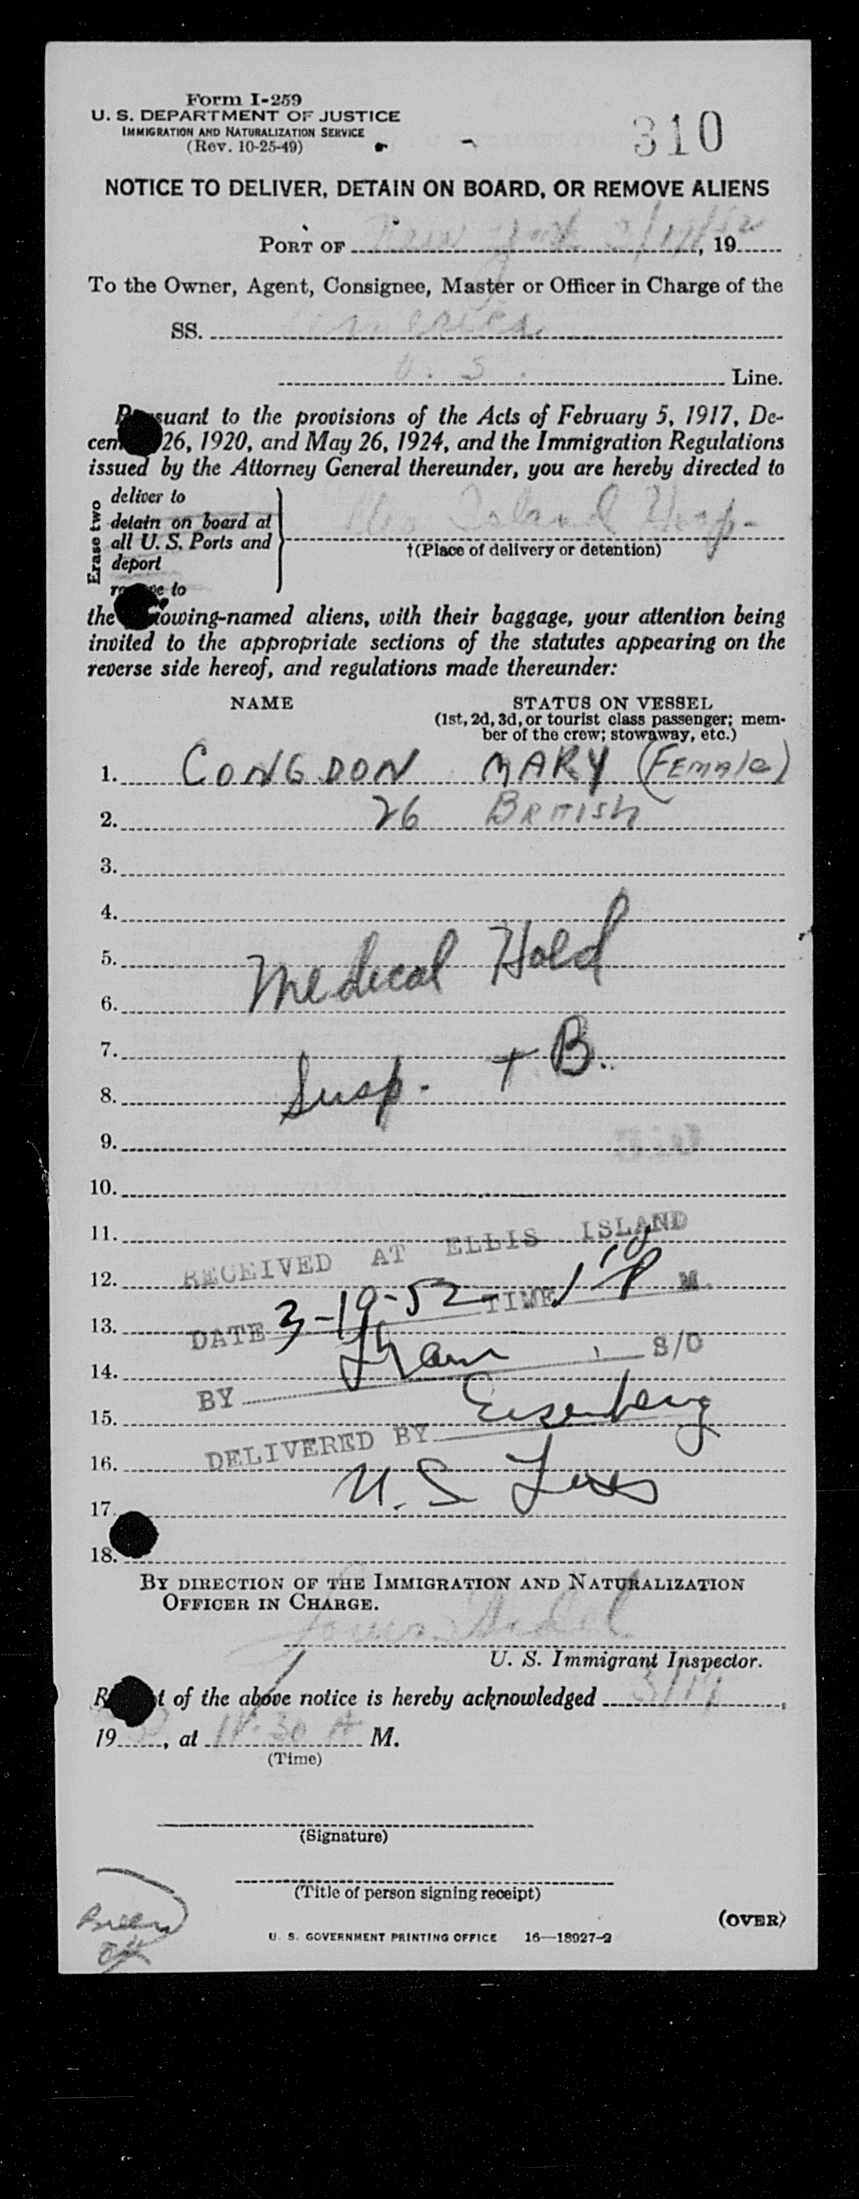 Form I-259
U. S. DEPARTMENT OF JUSTICE
IMMIGRATION AND NATURALIZATION SERVICE
(Rev. 10-25-49)
310
NOTICE TO DELIVER, DETAIN ON BOARD, OR REMOVE ALIENS
PORT OF New York 3/19/52, 19
To the Owner, Agent, Consignee, Master or Officer in Charge of the
SS. America
U. S. Line.
Pursuant to the provisions of the Acts of February 5, 1917, De-
cem 26, 1920, and May 26, 1924, and the Immigration Regulations
issued by the Attorney General thereunder, you are hereby directed to
Erase two
deliver to
detain on board at
all U. S. Ports and
deport
remove to
Island Hosp.
†(Place of delivery or detention)
the following-named aliens, with their baggage, your attention being
invited to the appropriate sections of the statutes appearing on the
reverse side hereof, and regulations made thereunder:
NAME STATUS ON VESSEL
(1st, 2d, 3d, or tourist class passenger; mem-
ber of the crew; stowaway, etc.)
1. CONGDON MARY (Female)
2. 26 BRITISH
3.
4.
5. Medical Hold
6.
7. Susp. TB.
8.
9.
10.
11. RECEIVED AT ELLIS ISLAND
12.
13. DATE 3-19-52 TIME M.
14. S/O
15. BY Eisenberg
16. DELIVERED BY
17. U.S Lines
18.
BY DIRECTION OF THE IMMIGRATION AND NATURALIZATION
OFFICER IN CHARGE.
Louis
U. S. Immigrant Inspector.
of the above notice is hereby acknowledged 3/19,
19, at 30 A M.
(Time)
(Signature)
(Title of person signing receipt)
(OVER)
U. S. GOVERNMENT PRINTING OFFICE 16—18927-2